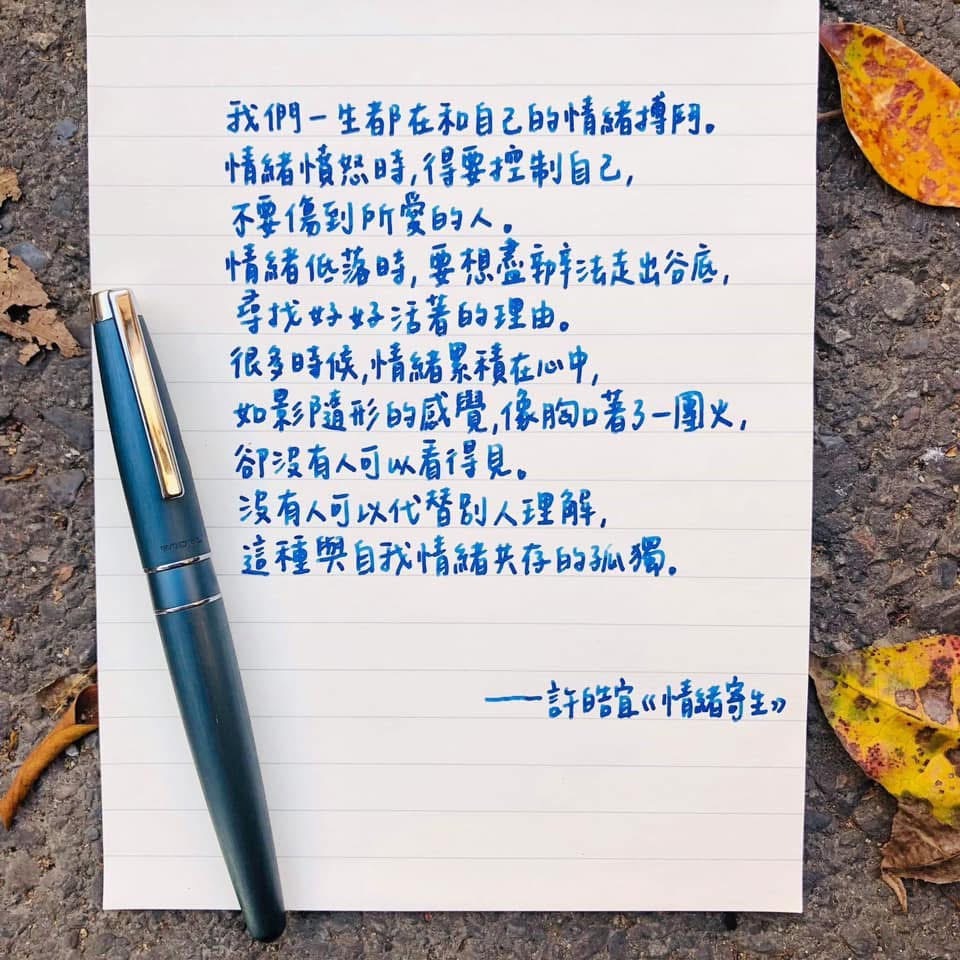 我們一生都在和自己的情緒搏鬥。
情緒憤怒時,得要控制自己,
不要傷到所愛的人。
情緒低落時,要想盡辦法走出谷底,
尋找好好活著的理由。
很多時候,情緒累積在心中,
如影隨形的感覺,像胸口著了一團火,
卻沒有人可以看得見。
沒有人可以代替別人理解,
這種與自我情緒共存的孤獨。
——許皓宜《情緒寄生》